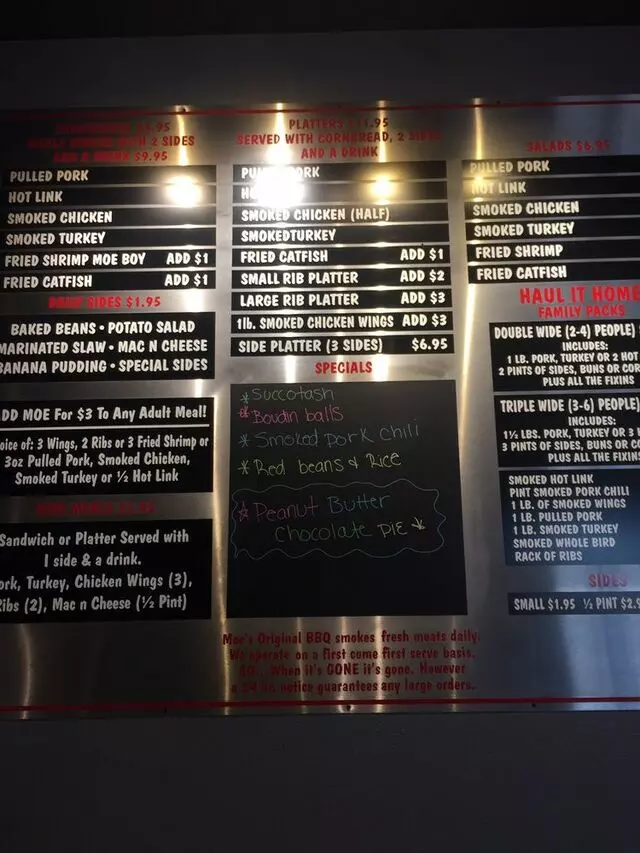 WITH 2 SIDES
AND A DRINK $9.95
PULLED PORK
HOT LINK
SMOKED CHICKEN
SMOKED TURKEY
FRIED SHRIMP MOE BOY ADD $1
FRIED CATFISH ADD $1
DAILY SIDES $1.95
BAKED BEANS • POTATO SALAD
MARINATED SLAW • MAC N CHEESE
BANANA PUDDING • SPECIAL SIDES
DD MOE For $3 To Any Adult Meal!
oice of: 3 Wings, 2 Ribs or 3 Fried Shrimp or
3oz Pulled Pork, Smoked Chicken,
Smoked Turkey or ½ Hot Link
Sandwich or Platter Served with
1 side & a drink.
ork, Turkey, Chicken Wings (3),
Ribs (2), Mac n Cheese (½ Pint)
PLATTERS $11.95
SERVED WITH CORNBREAD, 2 SIDES
AND A DRINK
PULLED PORK
HO
SMOKED CHICKEN (HALF)
SMOKEDTURKEY
FRIED CATFISH ADD $1
SMALL RIB PLATTER ADD $2
LARGE RIB PLATTER ADD $3
1lb. SMOKED CHICKEN WINGS ADD $3
SIDE PLATTER (3 SIDES) $6.95
SPECIALS
* Succotash
* Boudin balls
* Smoked pork chili
* Red beans & Rice
* Peanut Butter
Chocolate PIE *
Moe's Original BBQ smokes fresh meats daily.
We operate on a first come first serve basis.
When it's GONE it's gone. However
notice guarantees any large orders.
SALADS $6.95
PULLED PORK
HOT LINK
SMOKED CHICKEN
SMOKED TURKEY
FRIED SHRIMP
FRIED CATFISH
HAUL IT HOME
FAMILY PACKS
DOUBLE WIDE (2-4) PEOPLE)
INCLUDES:
1 LB. PORK, TURKEY OR 2 HOT
2 PINTS OF SIDES, BUNS OR COR
PLUS ALL THE FIXINS
TRIPLE WIDE (3-6) PEOPLE)
INCLUDES:
1½ LBS. PORK, TURKEY OR 3 H
3 PINTS OF SIDES, BUNS OR CO
PLUS ALL THE FIXINS
SMOKED HOT LINK
PINT SMOKED PORK CHILI
1 LB. OF SMOKED WINGS
1 LB. PULLED PORK
1 LB. SMOKED TURKEY
SMOKED WHOLE BIRD
RACK OF RIBS
SIDES
SMALL $1.95 ½ PINT $2.9